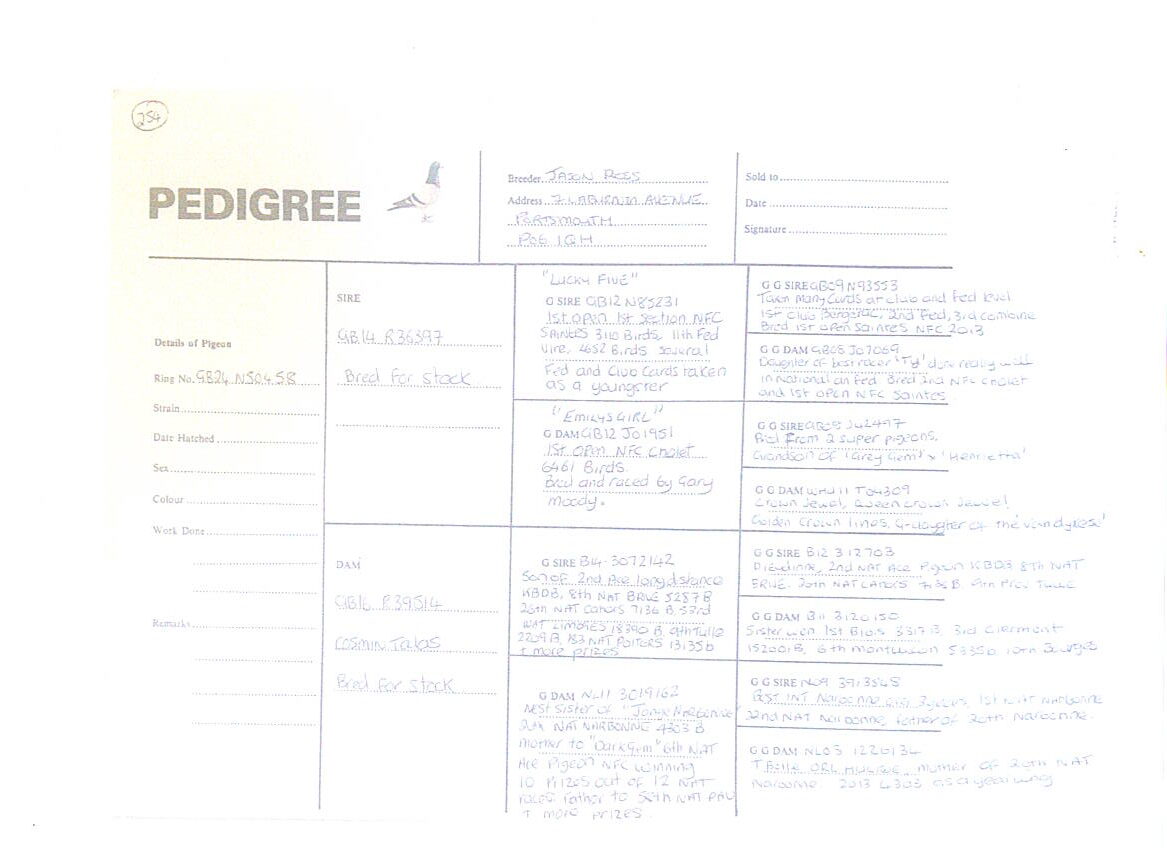 254
PEDIGREE
Breeder JASON ROSS
Address 7 LABURNUM AVENUE
PORTSMOUTH
PO6 1QH
Sold to
Date
Signature
Details of Pigeon
Ring No. GB24 N50458
Strain
Date Hatched
Sex
Colour
Work Done
Remarks
SIRE
GB14 R36397
Bred for stock
DAM
GB16 R39514
COSMIN TALOS
Bred for stock
"LUCKY FIVE"
G SIRE GB12 N85231
1st open 1st section NFC
SAINTES 3110 Birds, 11th Fed
Vire, 4652 Birds several
Fed and Club Cards taken
as a youngster
"EMILYS GIRL"
G DAM GB12 J01951
1st open NFC Cholet
6461 Birds.
Bred and raced by Gary
moody.
G SIRE B14-3072142
Son of 2nd Ace long distance
KBDB, 8th NAT BRIVE 5287B
26th NAT Cahors 7136 B, 53rd
NAT LIMOGES 18390 B, 9th Tulle
2209 B, 183 NAT POITERS 13135b
+ more prizes
G DAM NL11 3019162
nest sister of
NAT NARBONNE 4303 B
mother to "Dark Gem" 6th NAT
Ace Pigeon NFC winning
10 prizes out of 12 NAT
races. Father to 56th NAT PAU
+ more prizes.
G G SIRE GB09 N93553
Taken Many Cards at club and Fed level
1st Club Bergerac, 2nd Fed, 3rd combine
Bred 1st open Saintes NFC 2013
G G DAM GB08 J07069
Daughter of best racer 'Ty' done really well
in National an Fed. Bred 2nd NFC Cholet
and 1st OPEN NFC Saintes
G G SIRE GB08 J42497
Bred From 2 super pigeons.
Grandson of 'Grey Gem' x 'Henrietta'
G G DAM WHU11 T04309
Crown Jewel, Queen crown Jewel!
Golden Crown lines, G-daughter of the 'vandykes'
G G SIRE B12 312703
Dieudinne, 2nd NAT Ace Pigeon KBDB 8th NAT
BRIVE. 26th NAT CAHORS 7136 B. 9th Prov Tulle
G G DAM B11 3120150
Sister won 1st Blois 3317 B, 3rd Clermont
15200 B, 6th montlucon 5335b 10th Bourges
G G SIRE NL09 3913548
Best INT Narbonne 3years, 1st NAT NARBONNE
22nd NAT Narbonne, father of 20th Narbonne.
G G DAM NL05 1220134
mother OF 20th NAT
Narbonne. 2013 4303 as a yearling